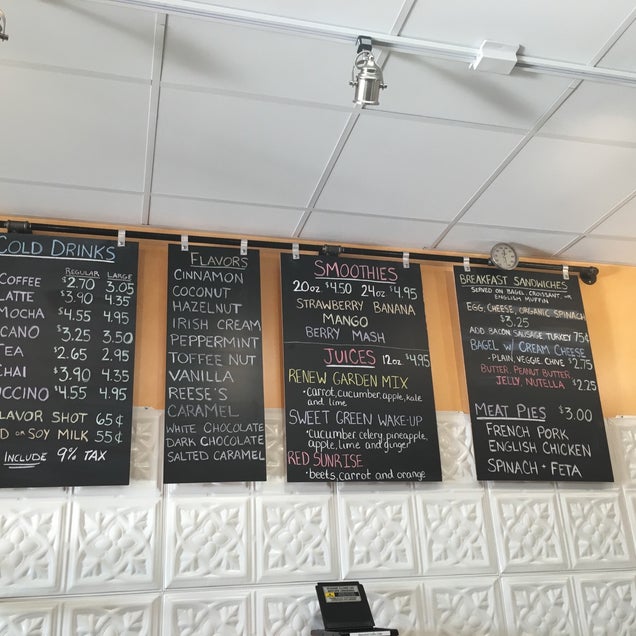 COLD DRINKS
REGULAR LARGE
COFFEE $2.70 3.05
LATTE $3.90 4.35
MOCHA $4.55 4.95
CANO $3.25 3.50
TEA $2.65 2.95
CHAI $3.90 4.35
UCCINO $4.55 4.95
LAVOR SHOT 65¢
D OR SOY MILK 55¢
INCLUDE 9% TAX
FLAVORS
CINNAMON
COCONUT
HAZELNUT
IRISH CREAM
PEPPERMINT
TOFFEE NUT
VANILLA
REESE'S
CARAMEL
WHITE CHOCOLATE
DARK CHOCOLATE
SALTED CARAMEL
SMOOTHIES
20oz $4.50 24oz $4.95
STRAWBERRY BANANA
MANGO
BERRY MASH
JUICES 12oz $4.95
RENEW GARDEN MIX
•carrot, cucumber, apple, kale
and lime
SWEET GREEN WAKE-UP
•cucumber celery, pineapple,
apple, lime and ginger
RED SUNRISE
•beets, carrot and orange
BREAKFAST SANDWICHES
SERVED ON BAGEL, CROISSANT, OR
ENGLISH MUFFIN
EGG, CHEESE, ORGANIC SPINACH
$3.25
ADD BACON SAUSAGE TURKEY 75¢
BAGEL w/ CREAM CHEESE
•PLAIN, VEGGIE, CHIVE $2.75
BUTTER, PEANUT BUTTER,
JELLY, NUTELLA $2.25
MEAT PIES $3.00
FRENCH PORK
ENGLISH CHICKEN
SPINACH + FETA